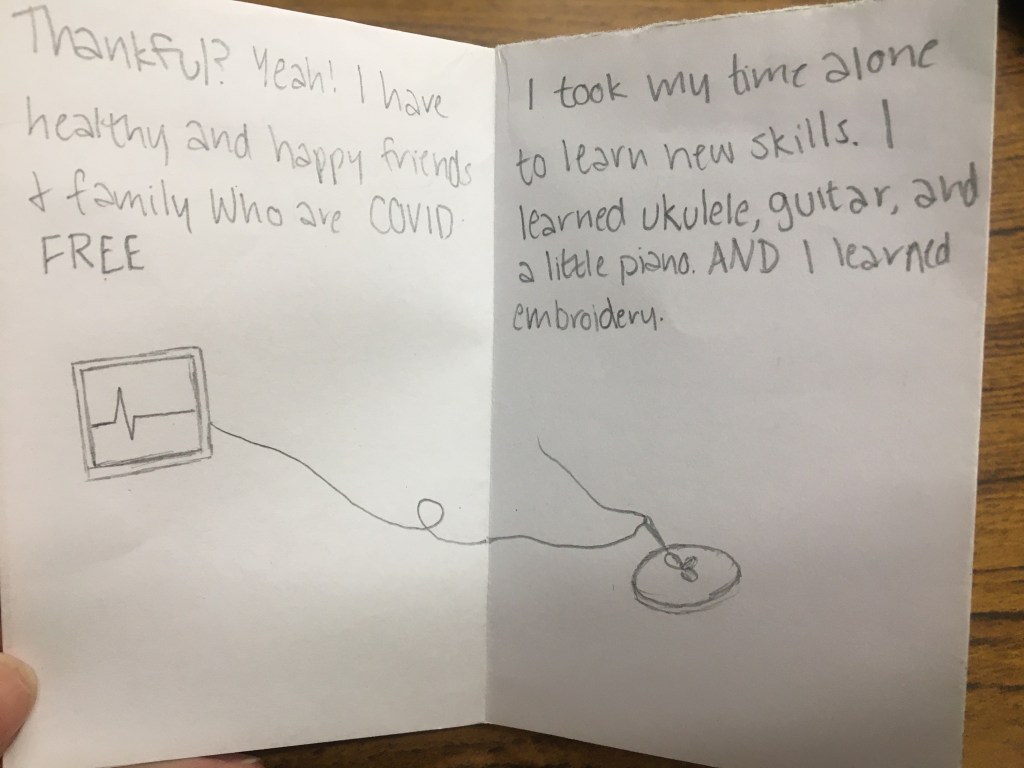 Thankful? Yeah! I have
healthy and happy friends
& family Who are COVID
FREE
I took my time alone
to learn new skills. I
learned ukulele, guitar, and
a little piano. AND I learned
embroidery.